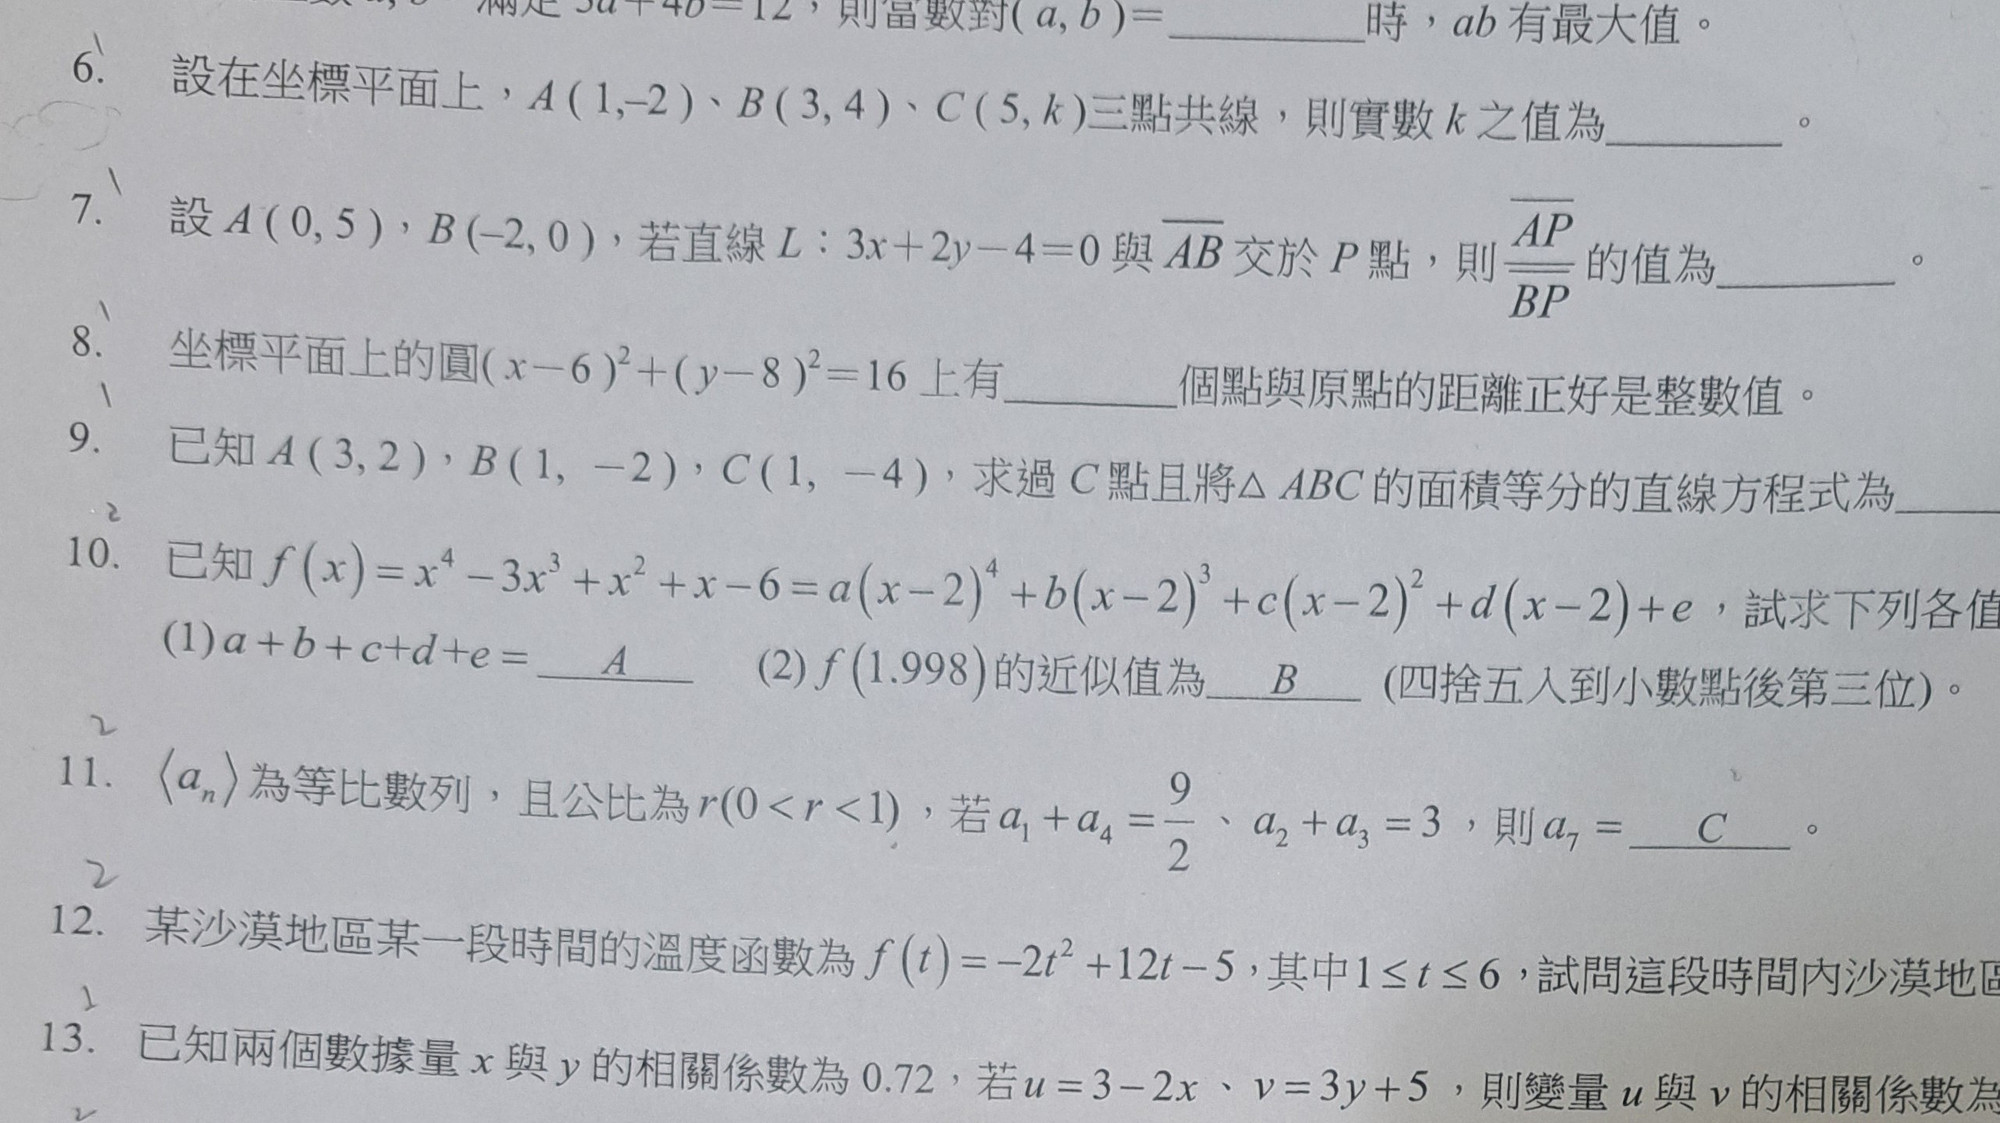 滿足 3a+4b=12，則當數對( a, b )=________時，ab 有最大值。
6. 設在坐標平面上，A ( 1,–2 )、B ( 3, 4 )、C ( 5, k )三點共線，則實數 k 之值為________。
7. 設 A ( 0, 5 )，B (–2, 0 )，若直線 L：3x+2y－4=0 與 \overline{AB} 交於 P 點，則 \frac{\overline{AP}}{\overline{BP}} 的值為________。
8. 坐標平面上的圓( x－6 )²+( y－8 )²=16 上有________個點與原點的距離正好是整數值。
9. 已知 A ( 3, 2 )，B ( 1, －2 )，C ( 1, －4 )，求過 C 點且將△ ABC 的面積等分的直線方程式為____
10. 已知 f(x)=x⁴－3x³+x²+x－6=a(x－2)⁴+b(x－2)³+c(x－2)²+d(x－2)+e，試求下列各值
(1) a+b+c+d+e=__A__ (2) f(1.998)的近似值為__B__ (四捨五入到小數點後第三位)。
11. ⟨aₙ⟩為等比數列，且公比為 r(0<r<1)，若 a₁+a₄=\frac{9}{2}、a₂+a₃=3，則 a₇=__C__。
12. 某沙漠地區某一段時間的溫度函數為 f(t)=–2t²+12t－5，其中1≤t≤6，試問這段時間內沙漠地區
13. 已知兩個數據量 x 與 y 的相關係數為 0.72，若 u=3－2x、v=3y+5，則變量 u 與 v 的相關係數為